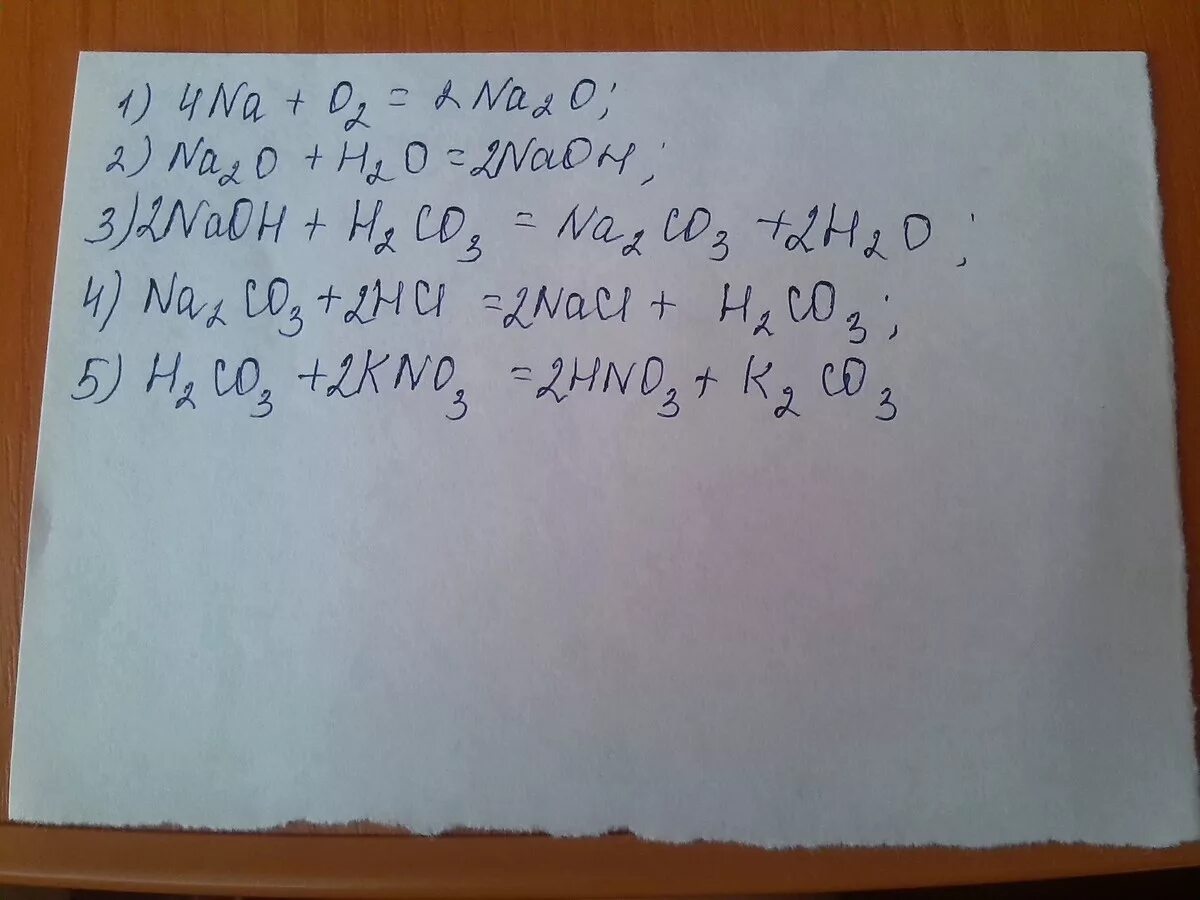 1) 4Na + O₂ = 2Na₂O;
2) Na₂O + H₂O = 2NaOH;
3) 2NaOH + H₂CO₃ = Na₂CO₃ + 2H₂O;
4) Na₂CO₃ + 2HCl = 2NaCl + H₂CO₃;
5) H₂CO₃ + 2KNO₃ = 2HNO₃ + K₂CO₃